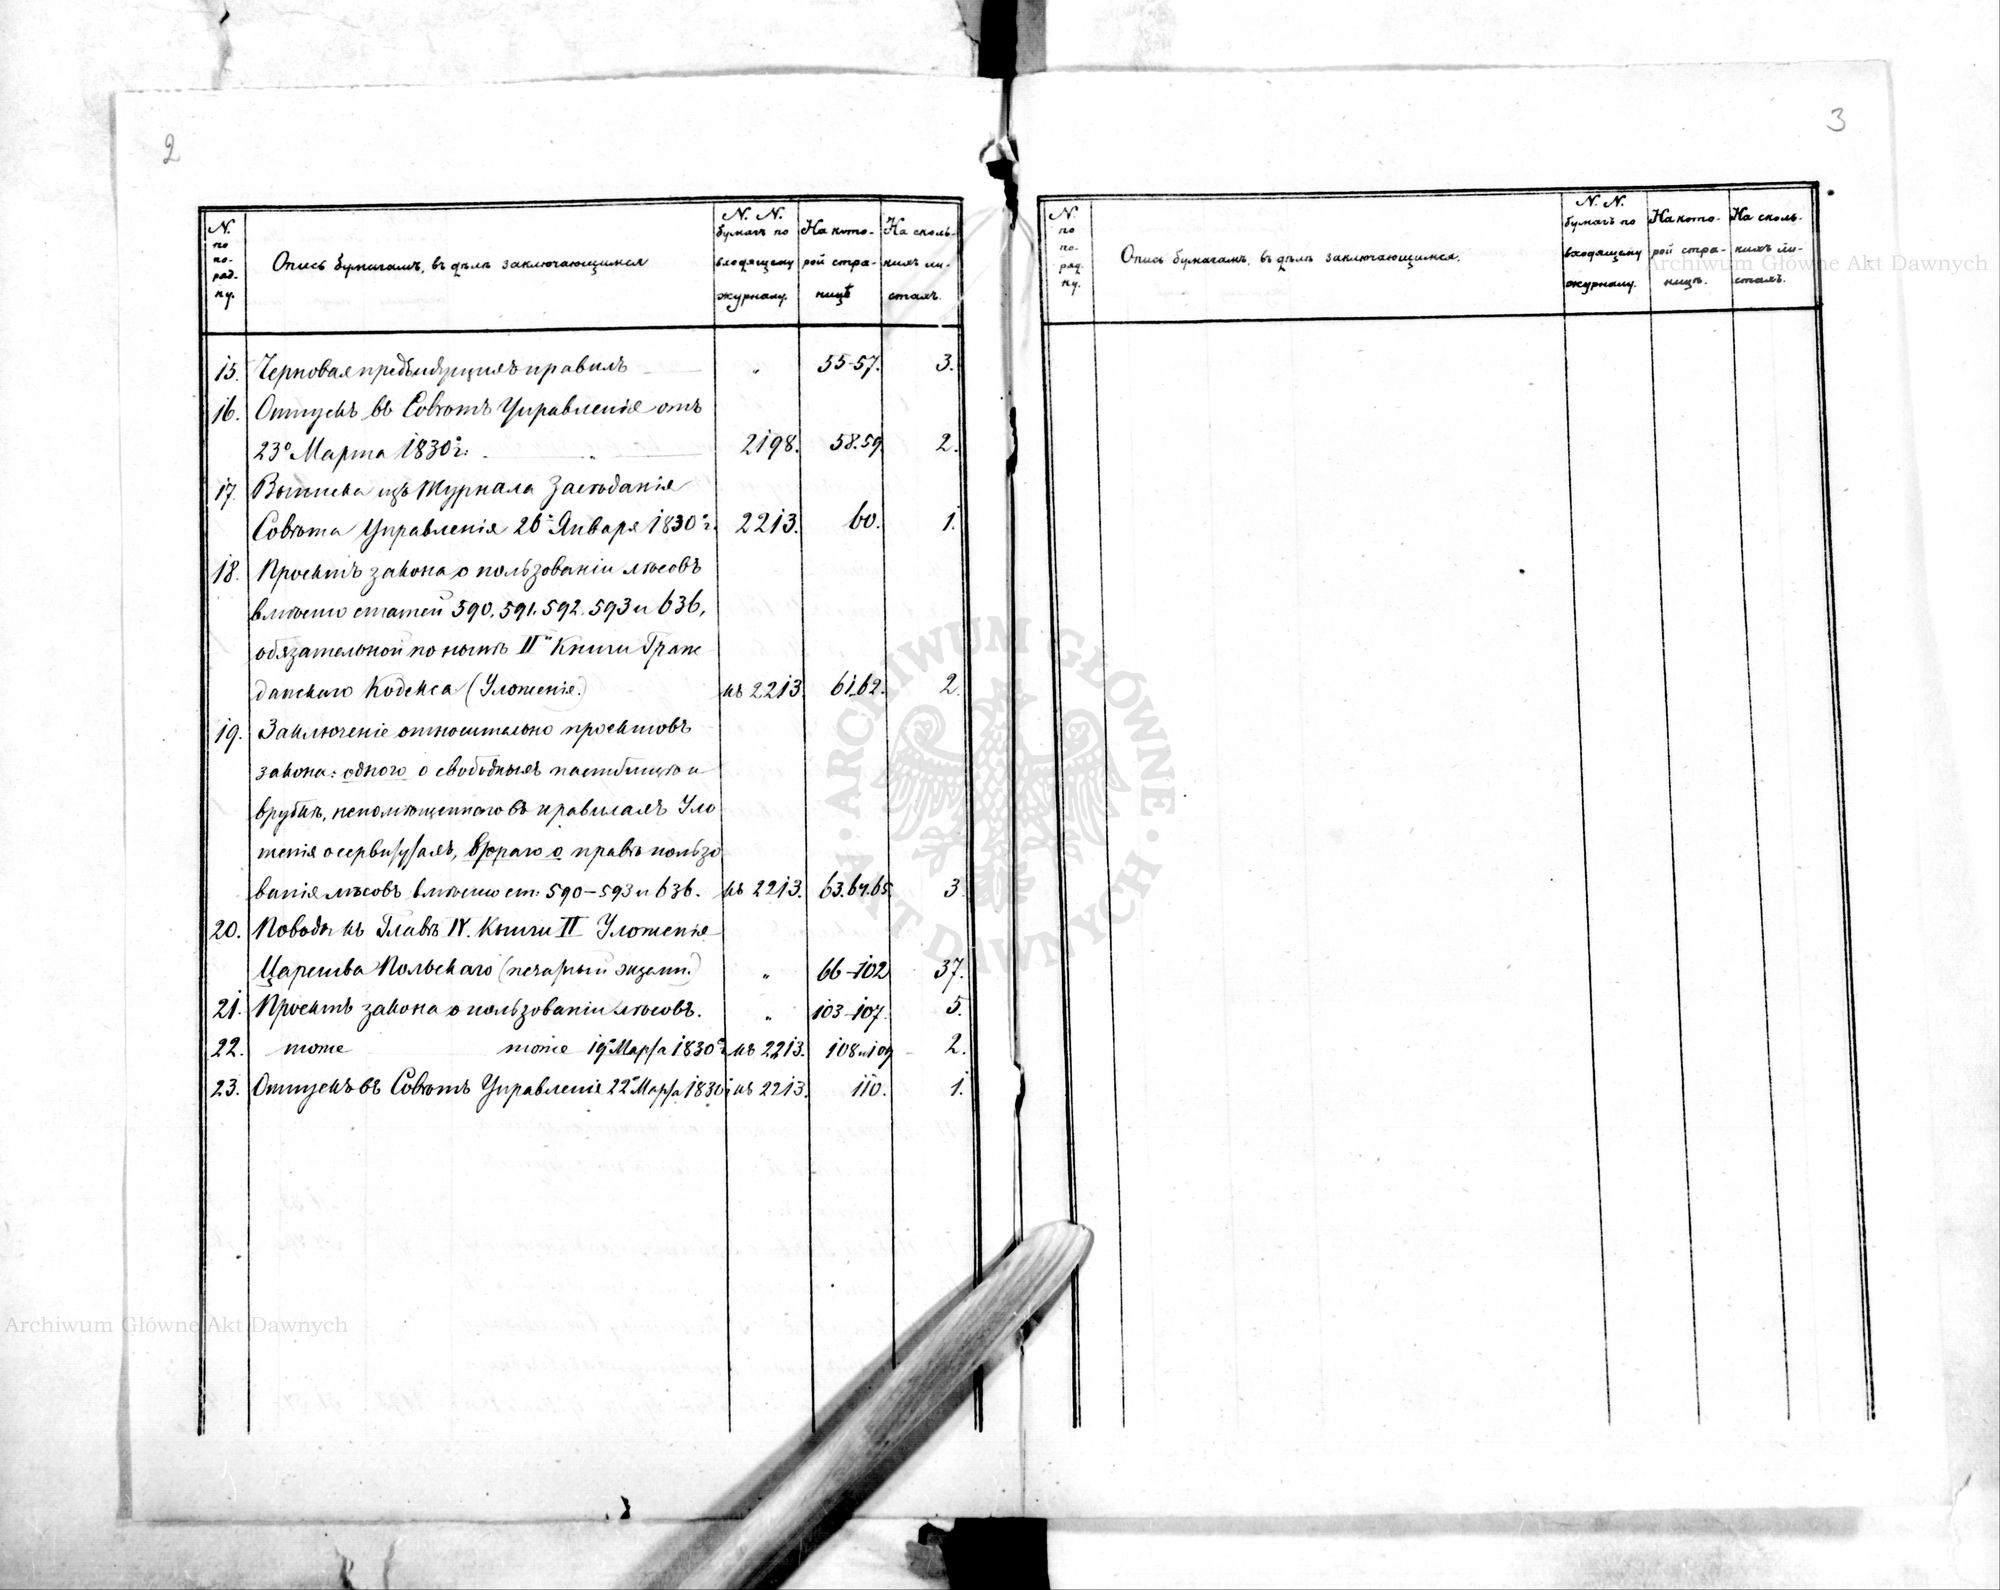 2
N. по по- ряд- ку.
Опись бумагамъ, въ дѣлѣ заключающимся
N. N. бумагъ по входящему журналу.
На кото- рой стра- ницѣ
На сколь- кихъ ли- стахъ.
15. Черновая предъидущихъ правилъ „ 55-57. 3.
16. Отпускъ въ Совѣтъ Управленія отъ
23го Марта 1830г. 2198. 58.59. 2.
17. Выписка изъ Журнала Засѣданія
Совѣта Управленія 26 Января 1830 г. 2213. 60. 1.
18. Проектъ закона о пользованіи лѣсовъ
вмѣсто статей 590. 591. 592. 593 и 636,
обязательной по нынѣ II Книги Граж-
данскаго Кодекса (Уложенія.) къ 2213. 61.62. 2.
19. Заключеніе относительно проектовъ
закона: одного о свободныхъ пастбищѣ и
врубкѣ, непомѣщеннаго въ правилахъ Уло
женія о сервитутахъ, втораго о правѣ пользо
ванія лѣсовъ вмѣсто ст: 590-593 и 636. къ 2213. 63.64.65. 3
20. Поводы къ Главѣ IV. Книги II Уложенія
Царства Польскаго (печатный экземп.) „ 66-102 37.
21. Проектъ закона о пользованіи лѣсовъ. „ 103-107. 5.
22. тоже тоже 19 Марта 1830 г. къ 2213. 108 и 109 2.
23. Отпускъ въ Совѣтъ Управленія 22 Марта 1830 г. къ 2213. 110. 1.
3
N. по по- ряд- ку.
Опись бумагамъ, въ дѣлѣ заключающимся.
N. N. бумагъ по входящему журналу.
На кото- рой стра- ницѣ.
На сколь- кихъ ли- стахъ.
Archiwum Główne Akt Dawnych
ARCHIWUM GŁÓWNE
AKT DAWNYCH
Archiwum Główne Akt Dawnych